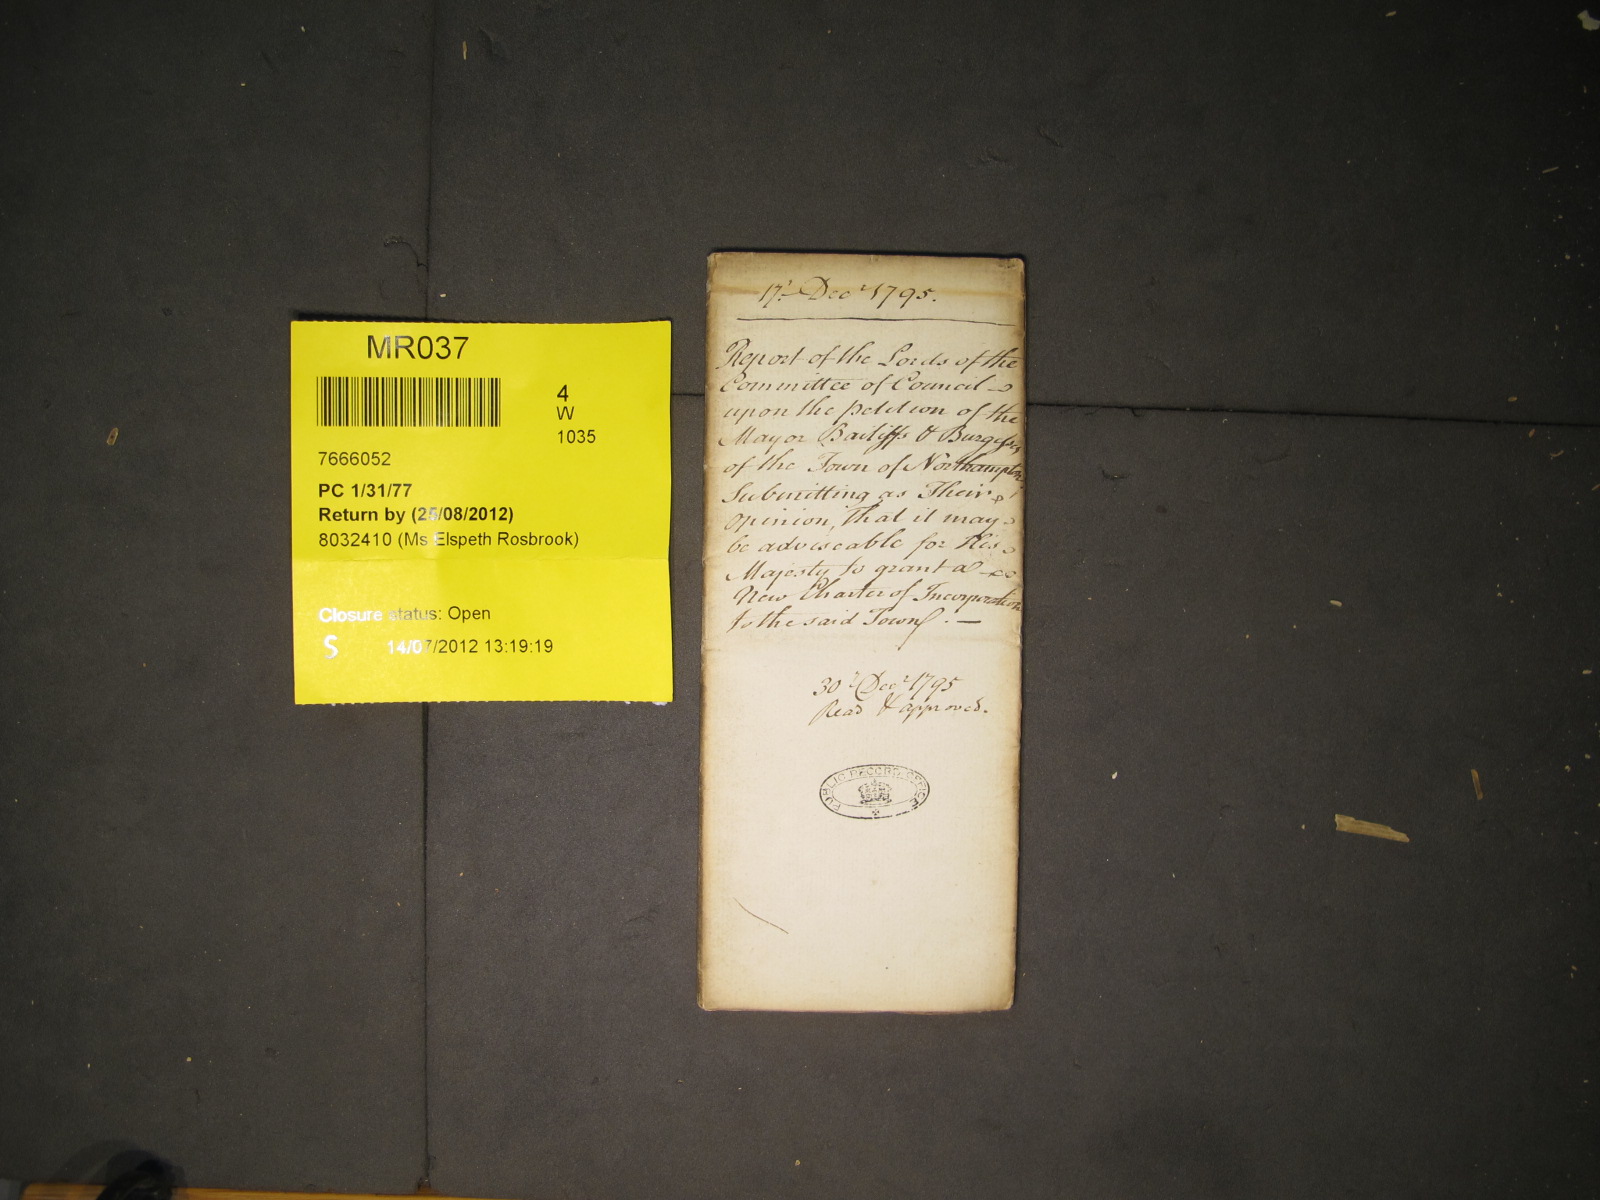 MR037
4
W
1035
7666052
PC 1/31/77
Return by (25/08/2012)
8032410 (Ms Elspeth Rosbrook)
Closure status: Open
S 14/07/2012 13:19:19
17th Decr 1795.
Report of the Lords of the
Committee of Council
upon the petition of the
Mayor Bailiffs & Burgesses
of the Town of Northampton
Submitting as Their
opinion, that it may
be adviseable for His
Majesty to grant a
New Charter of Incorporation
to the said Town. —
30th Decr 1795
Read & approved.
PUBLIC RECORD OFFICE